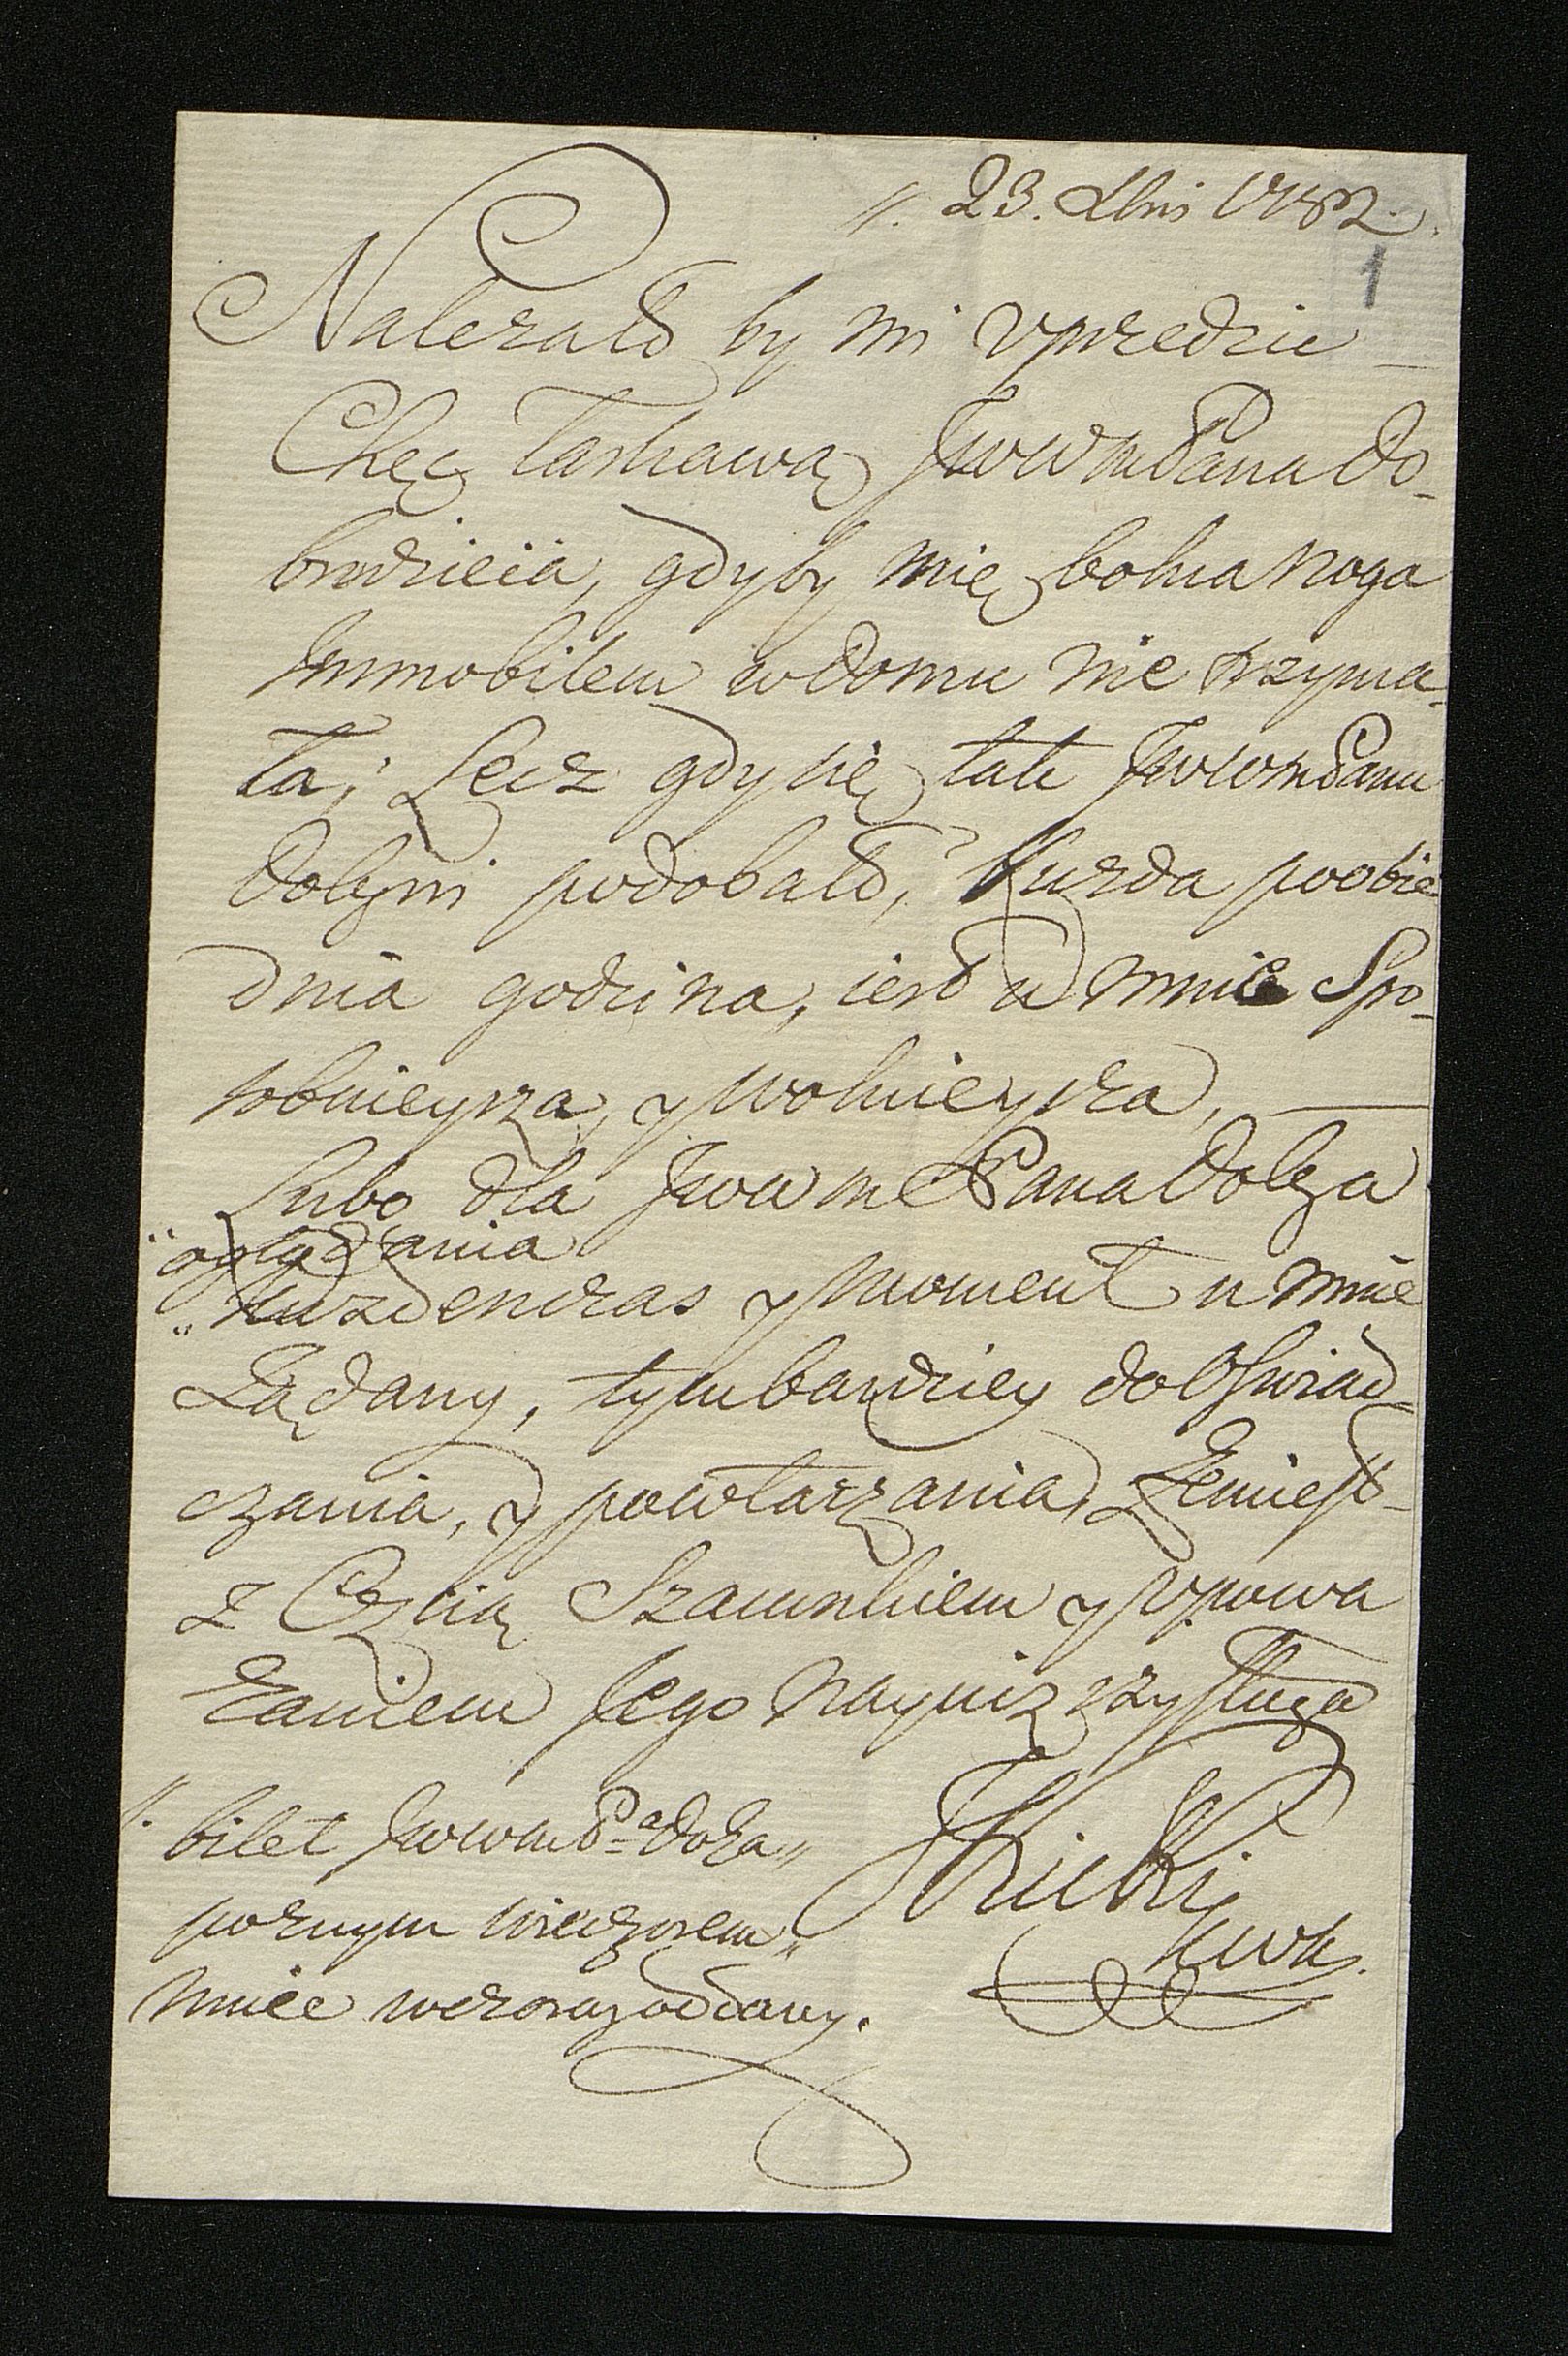 //. 23. Xbris 1782.
1
Należało by mi vprzedzic
Chęc łaskawą JwWmPana do-
brodzieia, gdyby mię bolna noga
Jmmobilem w domu nie trzyma-
ła; Lecz gdy się tak JwWmPanu
dobzwi podobało, kużda poobie
dnia godzina, iest u mnie Spo-
sobnieysza, y wolnieysza,
Lubo dla JwWmPana dobza
oglądania
kużden czas y moment u mnie
Żądany, tym bardziey do Oświad-
czania, y powtarzania, Żemiest
z Czcią Szacunkiem y vpowa
żaniem Jego nayniszszy sługa
//. bilet JwWmPa dobza
poznym wieczorem
mnie wczoray oddany.